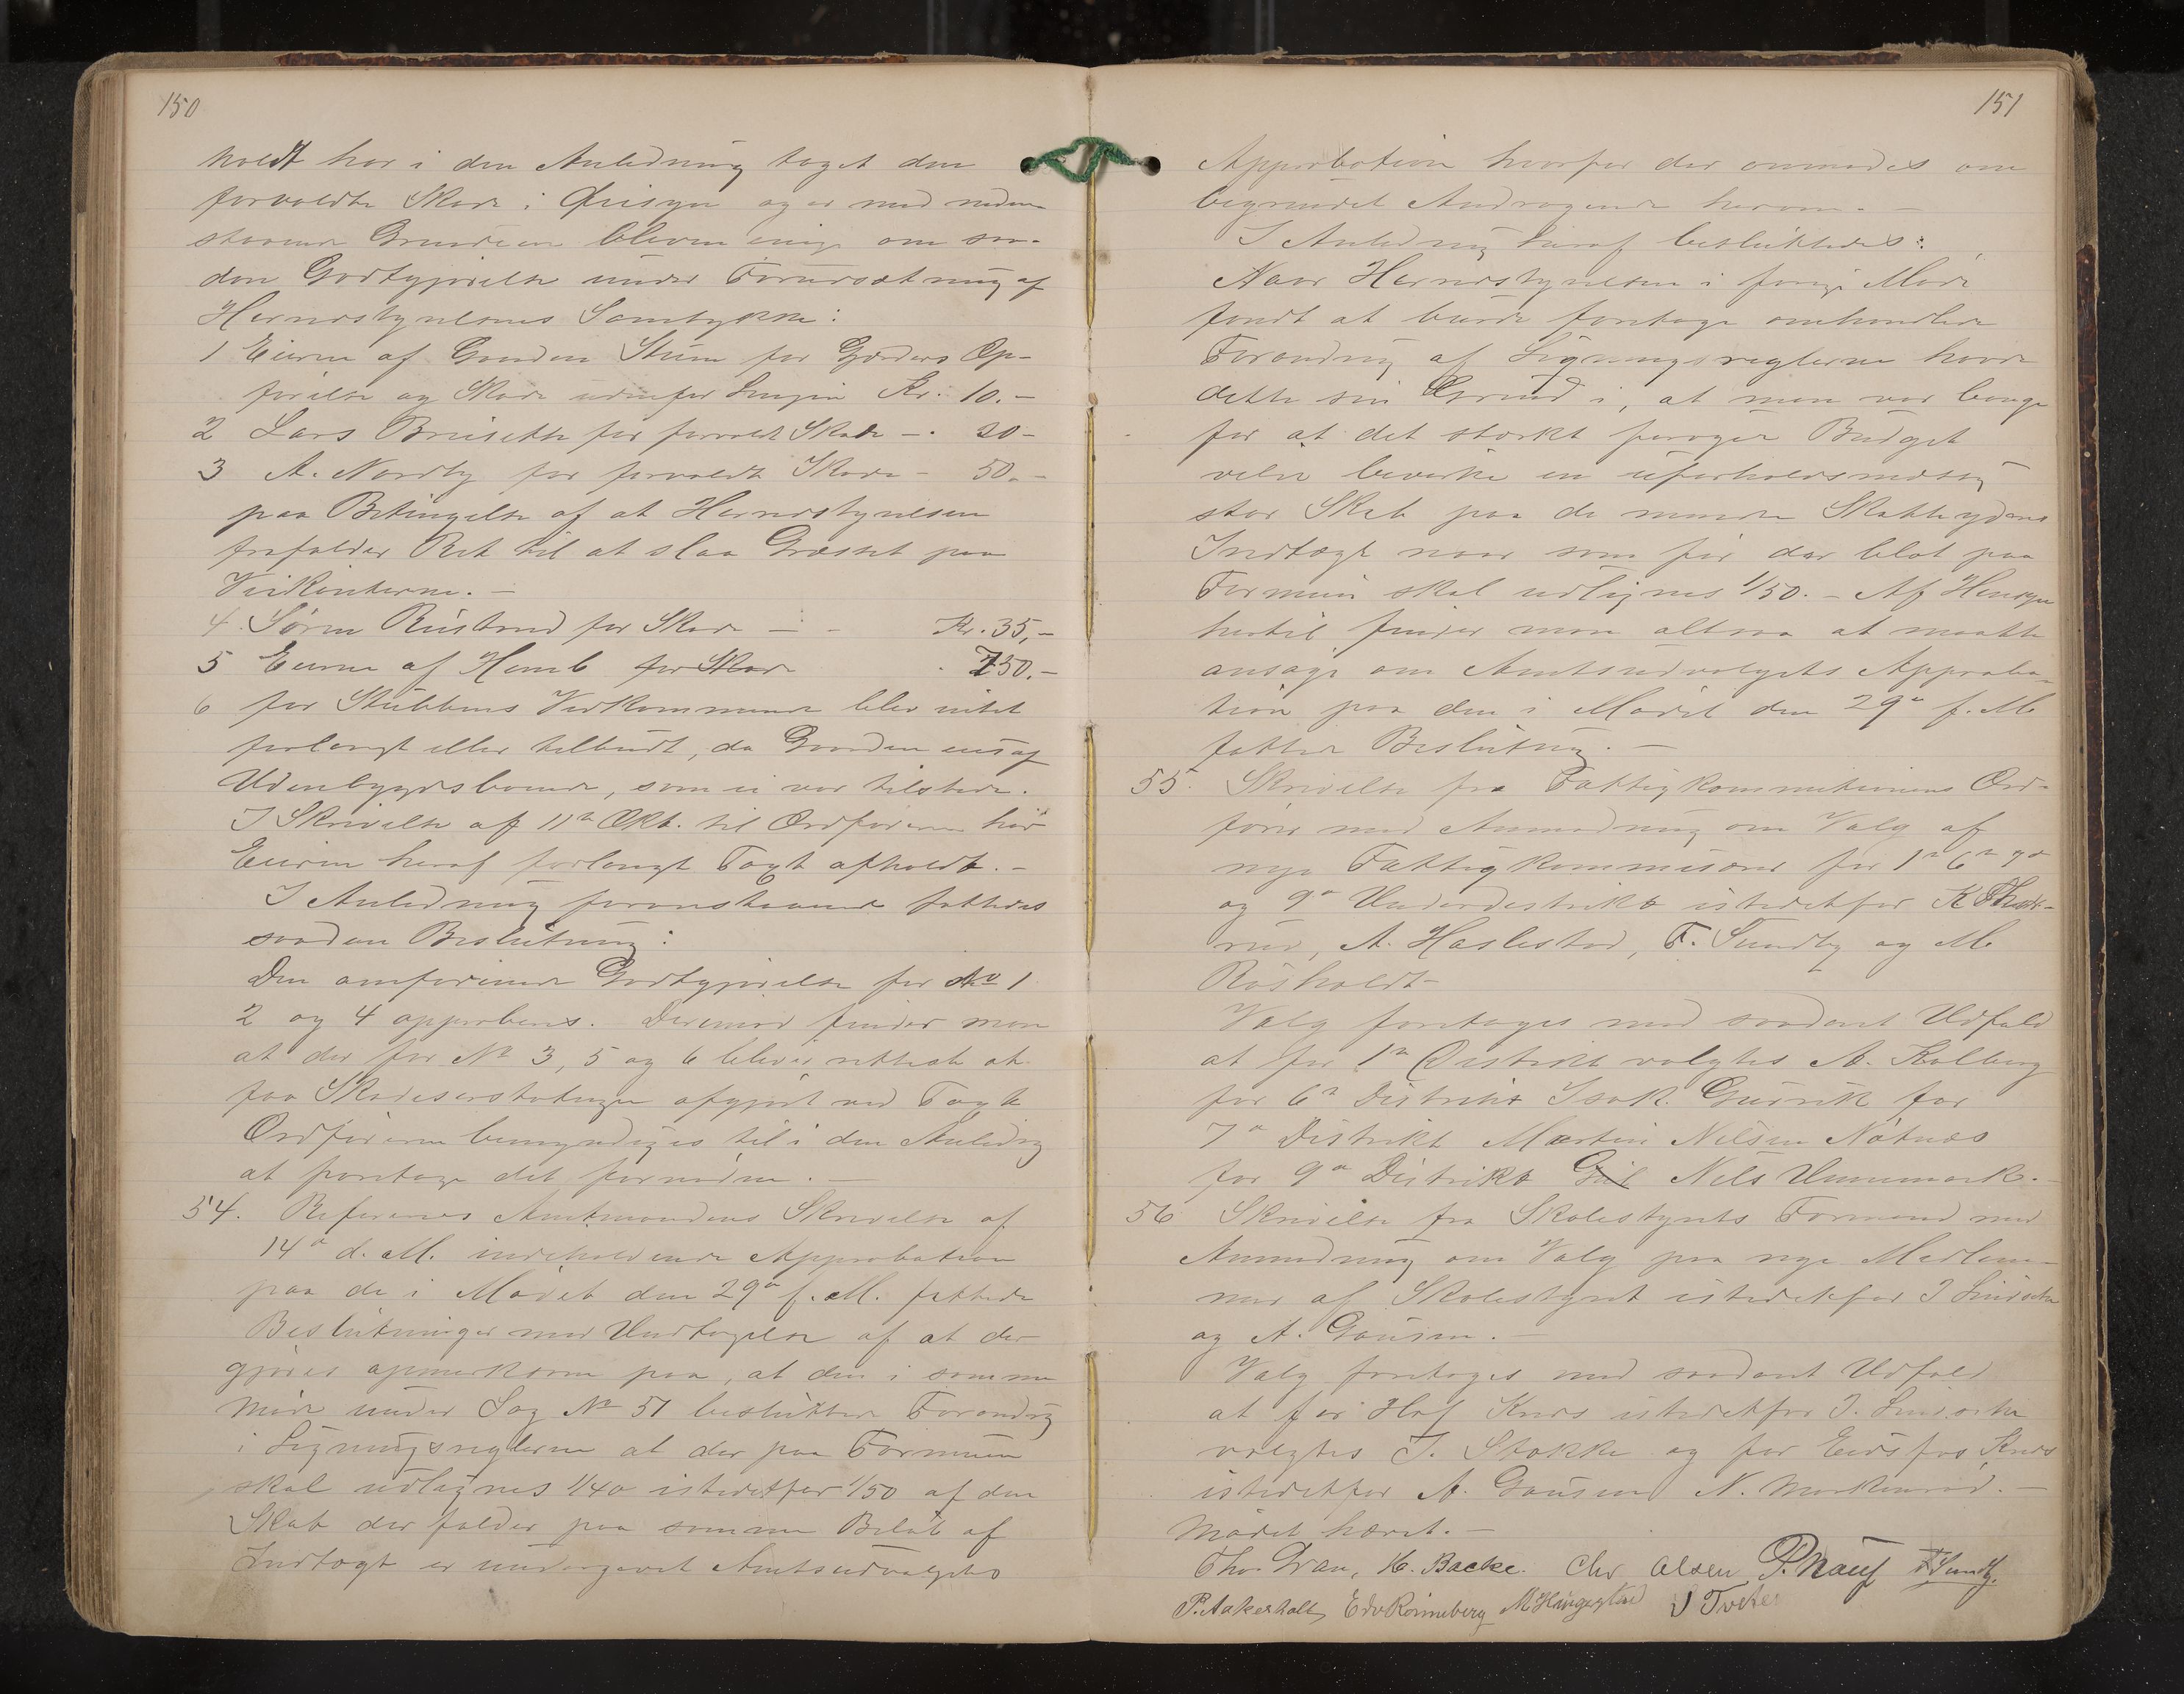 150
holdt har i den Anledning taget den
forvoldte Skade i Øiesyn og er med neden-
staaende Grundeiere bleven enige om saa-
dan Godtgjørelse under Forudsætning af
Herredsstyrelsens Samtykke:
1 Eieren af Gaarden Stum for Gjerders Op-
førelse og Skade udenfor Kr. 10.-
2 Lars Bruserth for forvoldt Skade -. 20-
3 A. Nordby for forvoldt Skade - 50.-
paa Betingelse af at Herredsstyrelsen
frafalder Ret til at slaa Græsset paa
Veikanterne.-
4. Søren Rustand for Skade - - Kr. 35,-
5 Eieren af Hemb for Skade . 750.-
6 for Stubbens Vedkommende blev intet
forlangt eller tilbudt, da Gaarden eies af
Udenbygdsboende, som ei var tilstede.
I Skrivelse af 11te Okt. til Ordføreren har
Eieren heraf forlangt Taxt afholdt.-
I Anledning foranstaaende fattedes
saadan Beslutning:
Den omførende Godtgjørelse for No 1
2 og 4 approberes. Derimod finder man
at der for No 3, 5 og 6 bliver rettest at
faa Skadeserstatningen afgjort ved Taxt
Ordføreren bemyndiges til i den Anledng
at foretage det fornødne.-
54. Refereres Amtmandens Skrivelse af
14de d. M. indeholdende Approbation
paa de i Mødet den 29de f. M. fattede
Beslutninger med Undtagelse af at der
gjøres opmerksom paa, at den i samme
Møde under Sag No 51 besluttede Forandrg
i Ligningsreglerne at der paa Formuen
skal udlignes 1/40 istedetfor 1/50 af den
Skat der falder paa samme Beløb af
Indtægt er undergivet Amtsudvalgets
151
Approbation hvorfor der anmodes om
begrundet Andragende herom.-
I Anledning heraf besluttedes:
Naar Herredsstyrelsen i forrige Møde
fandt at burde foretage omhandlede
Forandring af Ligningsreglerne havde
dette sin Grund i, at man var bange
for at det sterkt forøgede Budget
vilde bevirke en uforholdsmæssig
stor Skat paa de mindre Skatteyderes
Indtægt naar som før der blot paa
Formuen skal udlignes 1/50.- Af Hensyn
hertil finder man altsaa at maatte
ansøge om Amtsudvalgets Approba-
tion paa den i Mødet den 29de f. M
fattede Beslutning.-
55. Skrivelse fra Fattigkommissionens Ord-
fører med Anmodning om Valg af
nye Fattigkommissærer for 1ste 6te 7de
og 9de Underdistrikt istedetfor K
rud, A. Haslestad, F. Sundby og M
Røsholdt-
Valg foretages med saadant Udfald
at for 1ste Distrikt valgtes A. Kolberg
for 6te Distrikt Isak Gusrik for
7de Distrikt Martin Nilsen Nøtnæs
for 9de Distrikt Nils Unnemork.-
56 Skrivelse fra Skolestyrets Formand med
Anmodning om Valg paa nye Medlem-
mer af Skolestyret istedetfor J
og A. Gausen.-
Valg foretages med saadant Udfald
at for Hof Kreds istedetfor J.
valgtes J. Stokke og for Eidsfos Kreds
istedetfor A. Gausen N. Morkenrød.-
Mødet hævet.-
Thor Gran, H. Backe. Chr Olsen P. Nauf F Sundby.
P. Aakerholt, Edv Ronneberg M Haugestad J Tveten